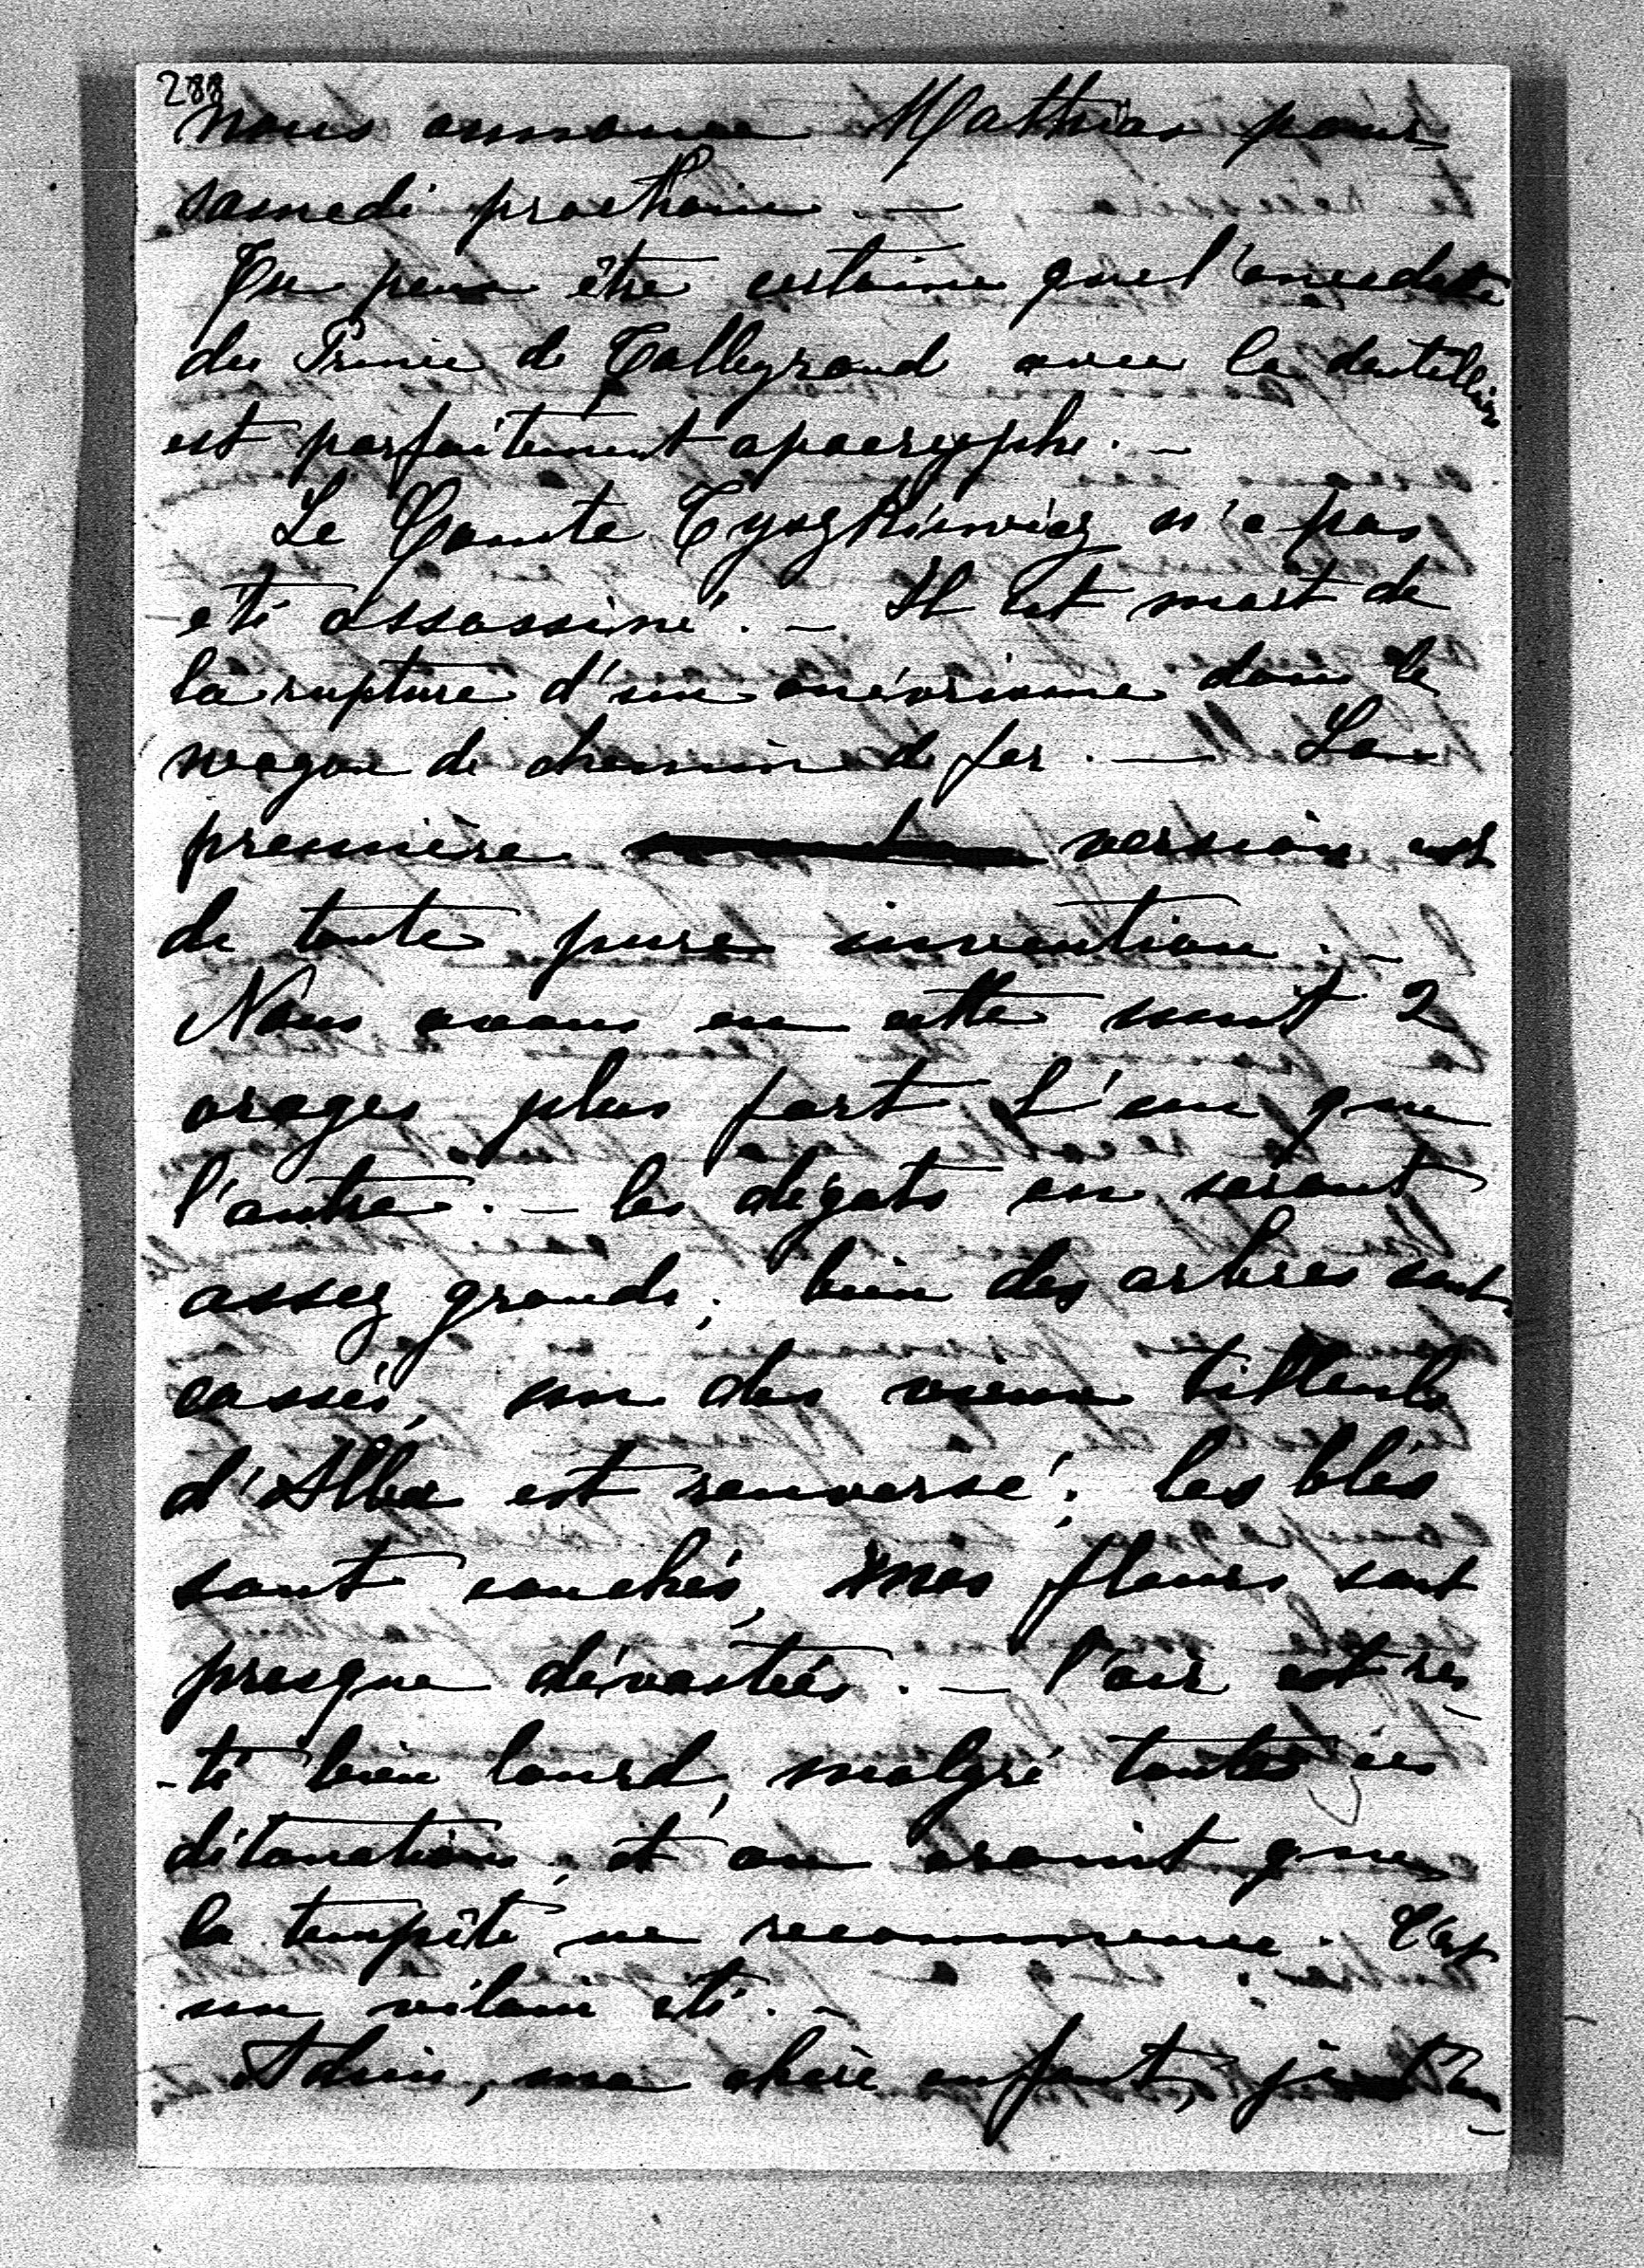 288
nous annonce Mathias pour
samedi prochain. —
Tu peux être certaine que l'anecdote
du Prince de Talleyrand avec la dentellière
est parfaitement apocryphe. —
Le Comte Tyszkiewicz n'a pas
été assassiné. — Il est mort de
la rupture d'un anévrisme dans le
wagon de chemin de fer. — La
première version est
de toute pure invention. —
Nous avons eu cette nuit 2
orages plus fort l'un que
l'autre. — les dégats en seront
assez grands; bien des arbres sont
cassés, un des vieux tilleuls
d'Alba est renversé; les blés
sont couchés, mes fleurs sont
presque dévastées. — l'air est res
-té bien lourd, malgré toutes ces
détonations, et on craint que
la tempête ne recommence. C'est
un vilain été. —
Adieu, ma chère enfant, je t'em-